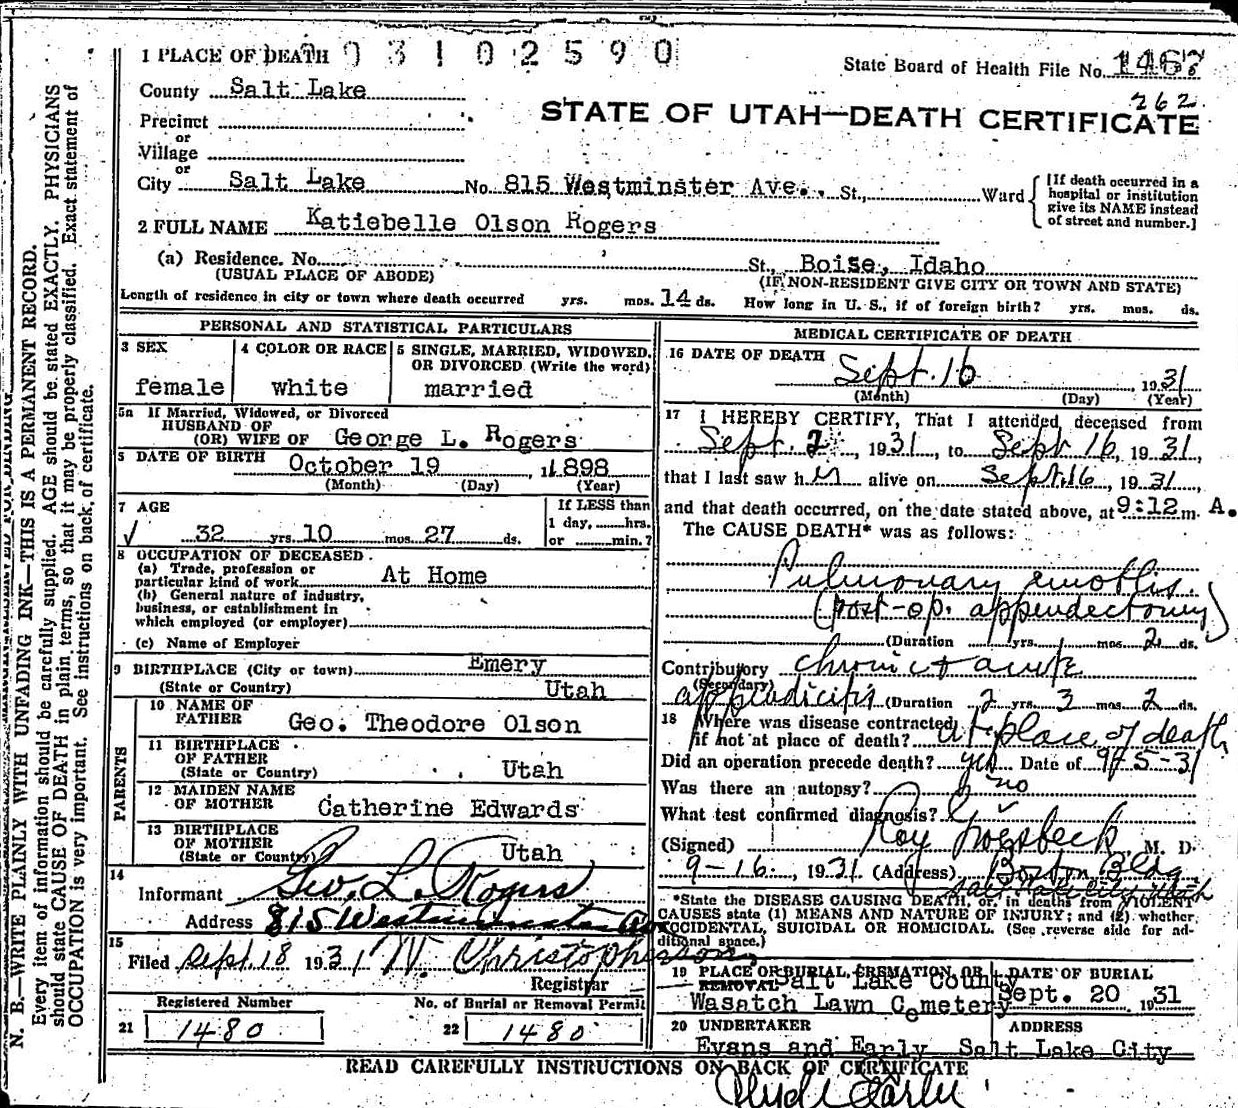 1 PLACE OF DEATH 0 3 1 0 2 5 9 0
State Board of Health File No. 1467
262
County Salt Lake
STATE OF UTAH—DEATH CERTIFICATE
Precinct
or
Village
or
City Salt Lake No. 815 Westminster Ave. St., Ward
[If death occurred in a
hospital or institution
give its NAME instead
of street and number.]
2 FULL NAME Katiebelle Olson Rogers
(a) Residence. No. St., Boise, Idaho
(USUAL PLACE OF ABODE) (IF NON-RESIDENT GIVE CITY OR TOWN AND STATE)
Length of residence in city or town where death occurred yrs. mos. 14 ds. How long in U. S., if of foreign birth? yrs. mos. ds.
N. B.—WRITE PLAINLY WITH UNFADING INK—THIS IS A PERMANENT RECORD.
Every item of information should be carefully supplied. AGE should be stated EXACTLY. PHYSICIANS
should state CAUSE OF DEATH in plain terms, so that it may be properly classified. Exact statement of
OCCUPATION is very important. See instructions on back of certificate.
PERSONAL AND STATISTICAL PARTICULARS
3 SEX
female
4 COLOR OR RACE
white
5 SINGLE, MARRIED, WIDOWED,
OR DIVORCED (Write the word)
married
5a If Married, Widowed, or Divorced
HUSBAND OF
(OR) WIFE OF George L. Rogers
DATE OF BIRTH October 19 1898
(Month) (Day) (Year)
7 AGE
32 yrs. 10 mos. 27 ds.
If LESS than
1 day, hrs.
or min.?
8 OCCUPATION OF DECEASED
(a) Trade, profession or
particular kind of work At Home
(b) General nature of industry,
business, or establishment in
which employed (or employer)
(c) Name of Employer
9 BIRTHPLACE (City or town) Emery
(State or Country) Utah
PARENTS
10 NAME OF
FATHER Geo. Theodore Olson
11 BIRTHPLACE
OF FATHER
(State or Country) Utah
12 MAIDEN NAME
OF MOTHER Catherine Edwards
13 BIRTHPLACE
OF MOTHER
(State or Country) Utah
14
Informant Geo. L. Rogers
Address 815 Westminster Ave
15
Filed Sept. 18 1931 Christopherson
Registrar
Registered Number No. of Burial or Removal Permit
21 1480 22 1480
MEDICAL CERTIFICATE OF DEATH
16 DATE OF DEATH Sept. 16, 1931
(Month) (Day) (Year)
17 I HEREBY CERTIFY, That I attended deceased from
Sept. 2, 1931, to Sept 16, 1931,
that I last saw h alive on Sept. 16, 1931,
and that death occurred, on the date stated above, at 9:12 m. A.
The CAUSE DEATH* was as follows:
Pulmonary
(post-op. appendectomy)
(Duration yrs. mos. 2 ds.
Contributory chronic + acute
(Secondary)
appendicitis (Duration 2 yrs. 3 mos. 2 ds.
18 Where was disease contracted
if not at place of death? at place of death
Did an operation precede death? yes Date of 9-5-31
Was there an autopsy? no
What test confirmed diagnosis?
(Signed) Roy Groesbeck, M. D.
9-16, 1931. (Address) Boston Bldg
Salt Lake City Utah
*State the DISEASE CAUSING DEATH, or, in deaths from VIOLENT
CAUSES state (1) MEANS AND NATURE OF INJURY; and (2) whether
ACCIDENTAL, SUICIDAL OR HOMICIDAL. (See reverse side for ad-
ditional space.)
19 PLACE OR BURIAL, CREMATION, OR
REMOVAL Salt Lake County
Wasatch Lawn Cemetery
DATE OF BURIAL
Sept. 20 1931
20 UNDERTAKER ADDRESS
Evans and Early Salt Lake City
READ CAREFULLY INSTRUCTIONS ON BACK OF CERTIFICATE
Early